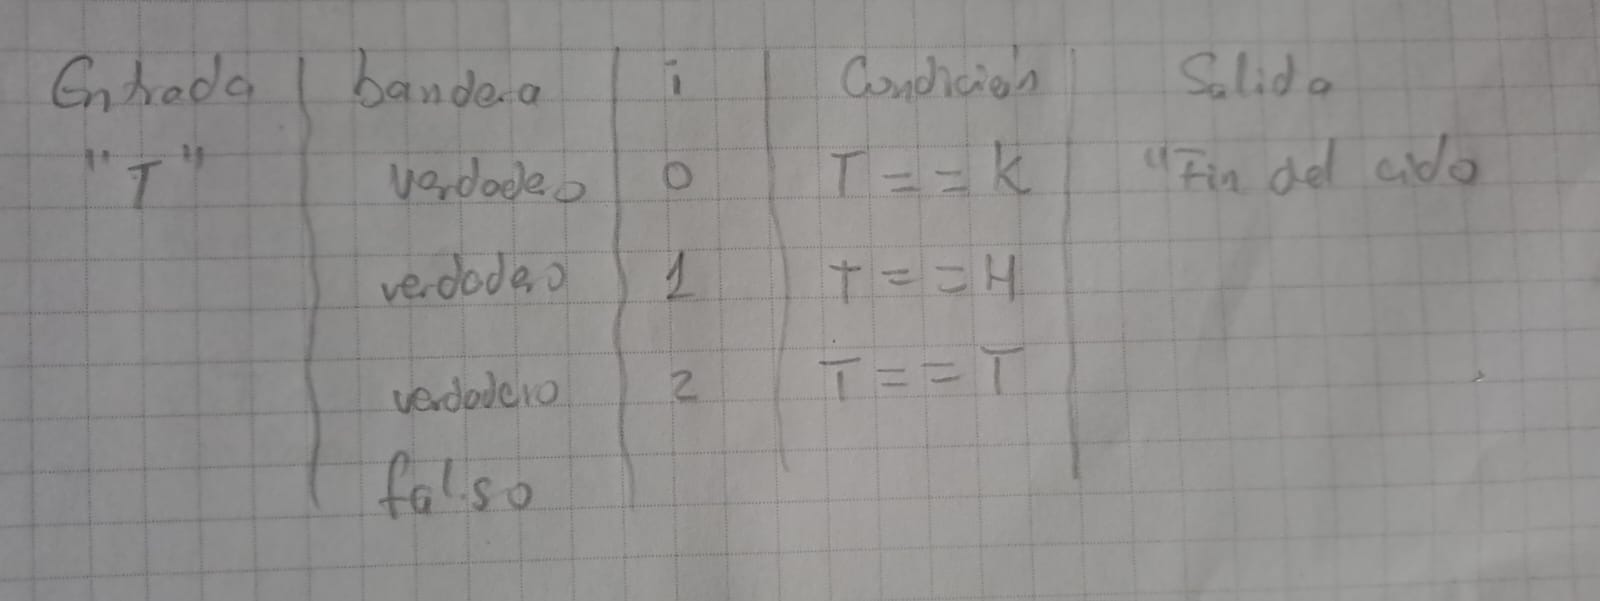 Entrada bandera i Condición Salida
"T" verdadero 0 T == K "Fin del ciclo
verdadero 1 T == H
verdadero 2 T == T
falso